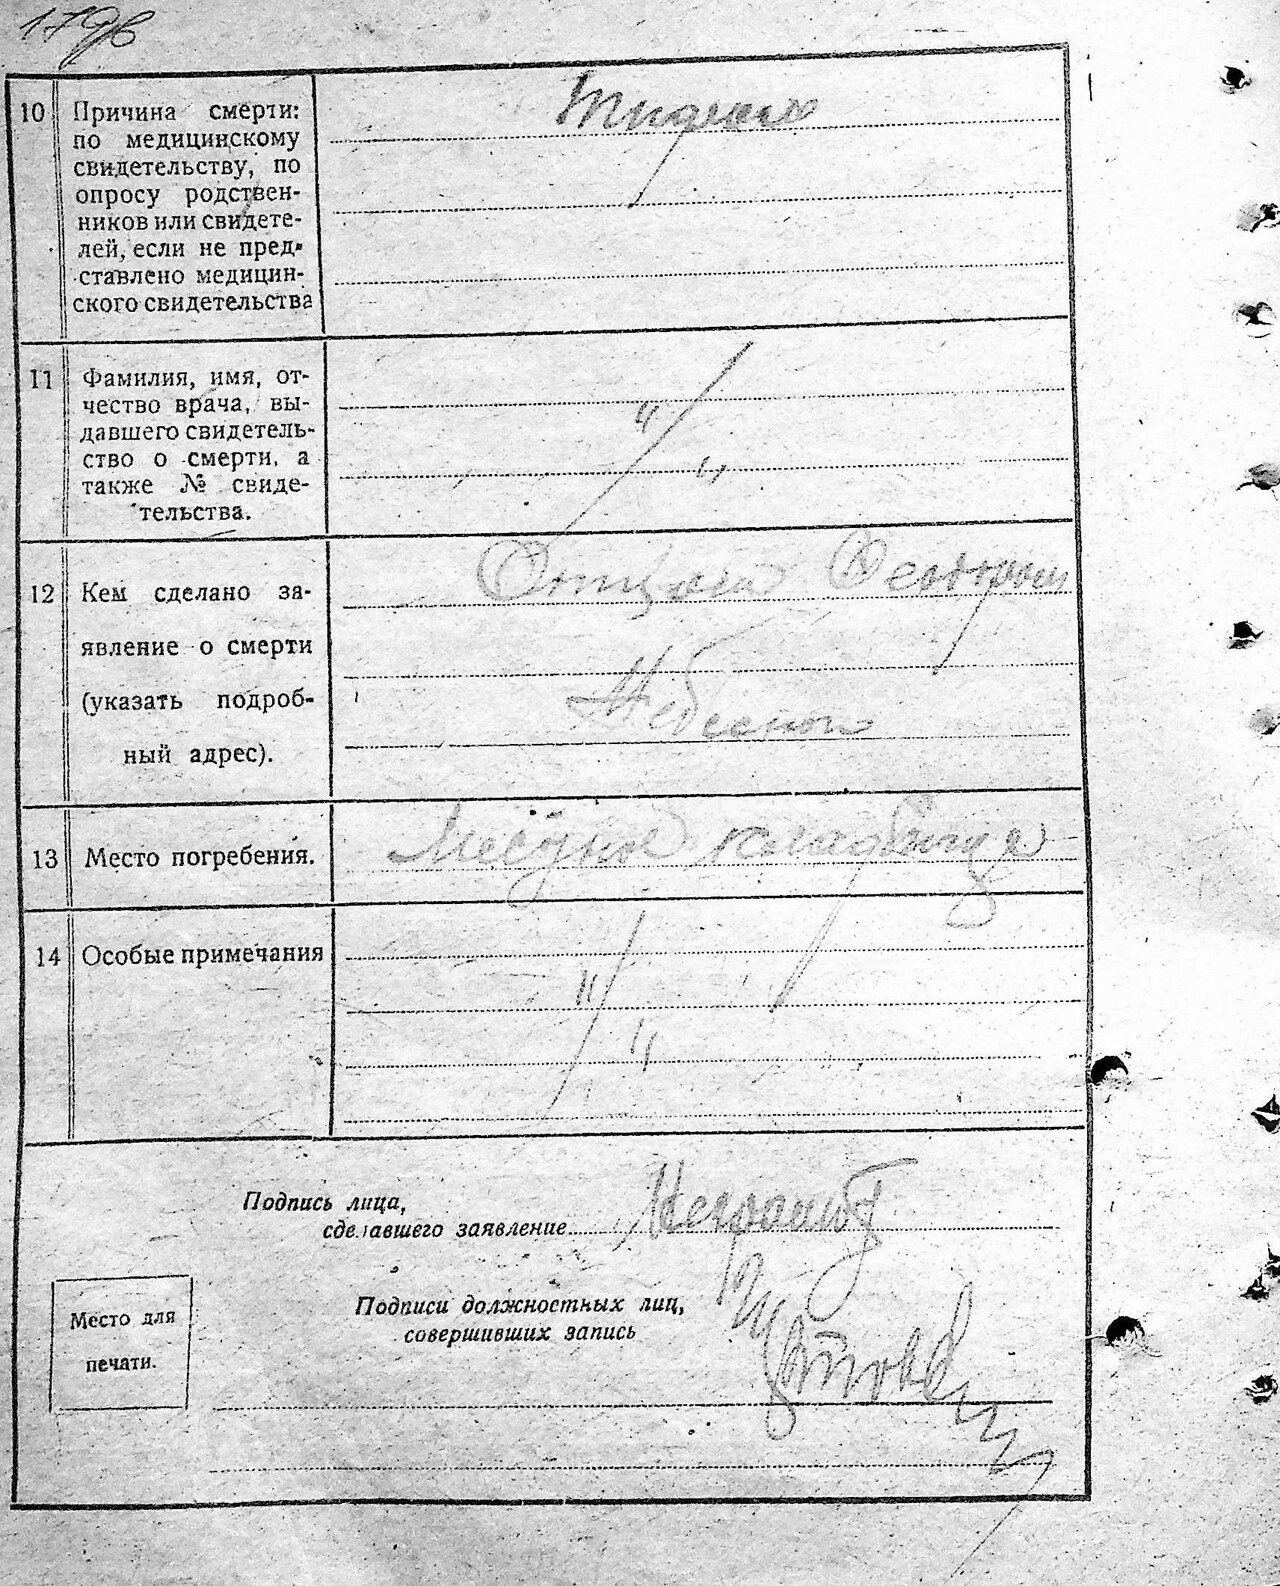 179в
10 Причина смерти:
по медицинскому
свидетельству, по
опросу родствен-
ников или свидете-
лей, если не пред-
ставлено медицин-
ского свидетельства
11 Фамилия, имя, от-
чество врача, вы-
давшего свидетель-
ство о смерти, а
также № свиде-
тельства.
"
"
12 Кем сделано за-
явление о смерти
(указать подроб-
ный адрес).
Отцом
13 Место погребения.
кладбище
14 Особые примечания
"
"
Подпись лица,
сделавшего заявление
Неграмот
Подписи должностных лиц,
совершивших запись
Место для
печати.